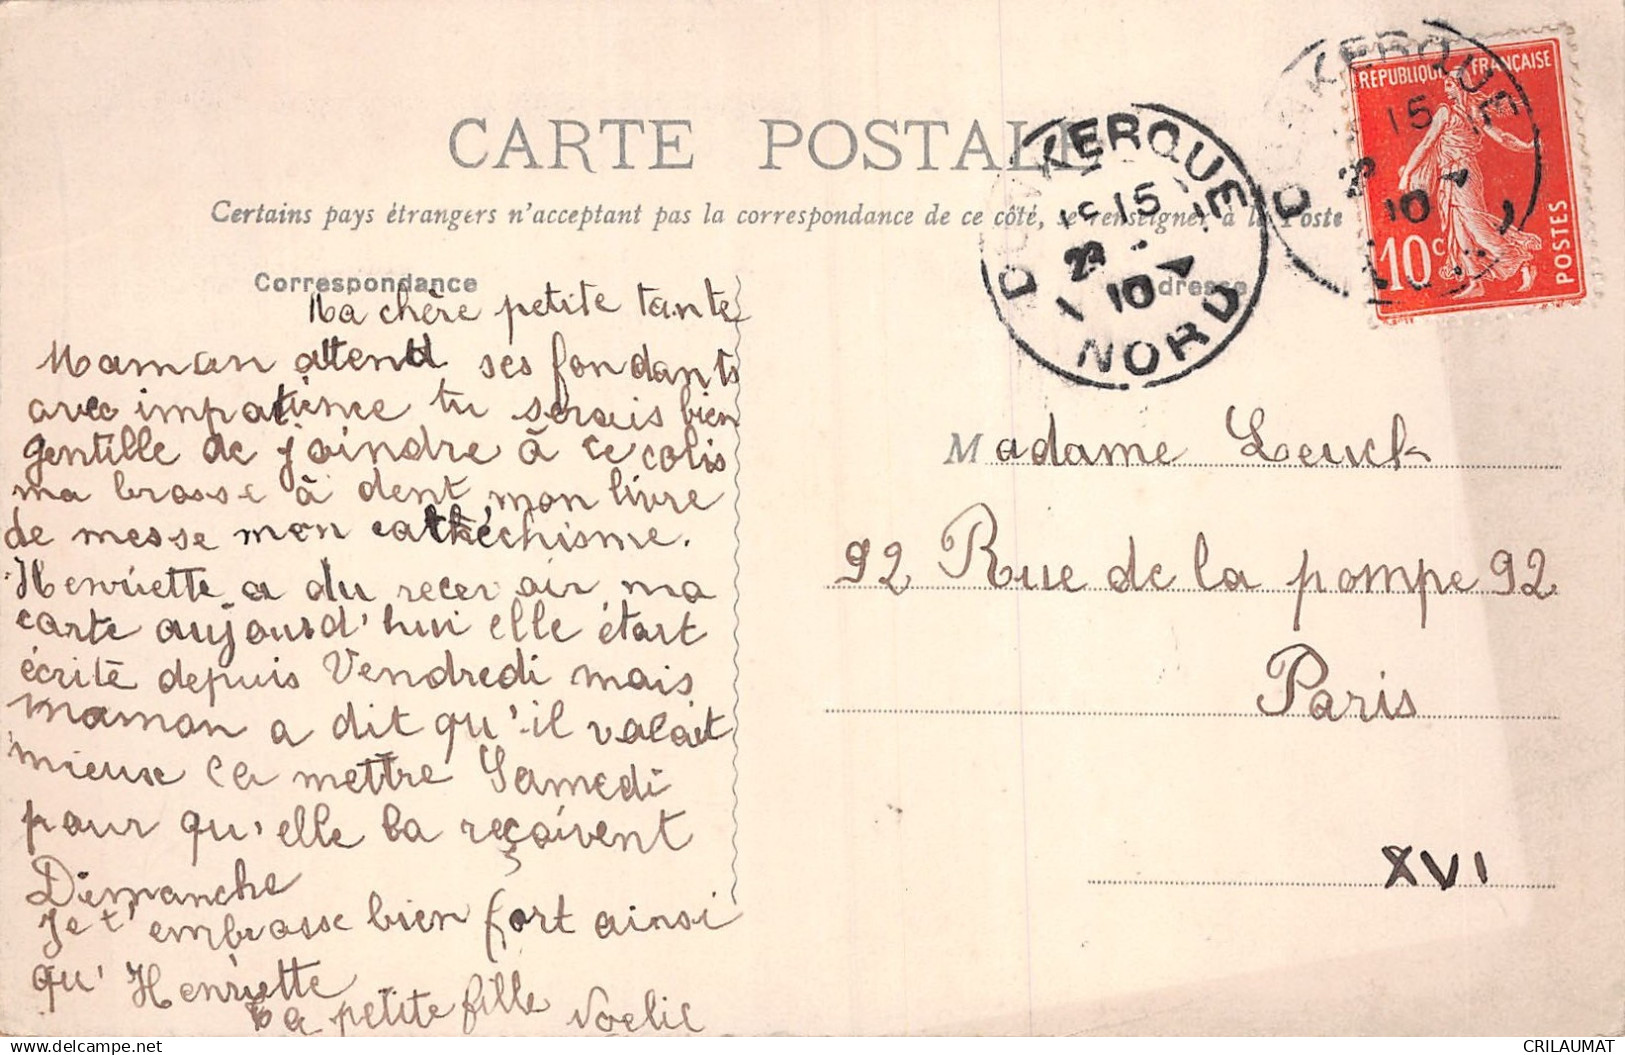 CARTE POSTALE
Certains pays étrangers n'acceptant pas la correspondance de ce côté, se renseigner à la Poste
Correspondance
Ma chère petite tante
Maman attend ses fondants
avec impatience tu serais bien
gentille de joindre à ce colis
ma brosse à dent, mon livre
de messe mon cathéchisme.
Henriette a du recevoir ma
carte aujourd'hui elle était
écrite depuis Vendredi mais
maman a dit qu'il valait
mieux la mettre Samedi
pour qu'elle la reçoivent
Dimanche
Je t'embrasse bien fort ainsi
qu'Henriette
ta petite fille Noelie
DUNKERQUE
15
10
NORD
REPUBLIQUE FRANÇAISE
10c
POSTES
KERQUE
15
10
Adresse
Madame Leuck
92 Rue de la pompe 92
Paris
XVI
CRILAUMAT